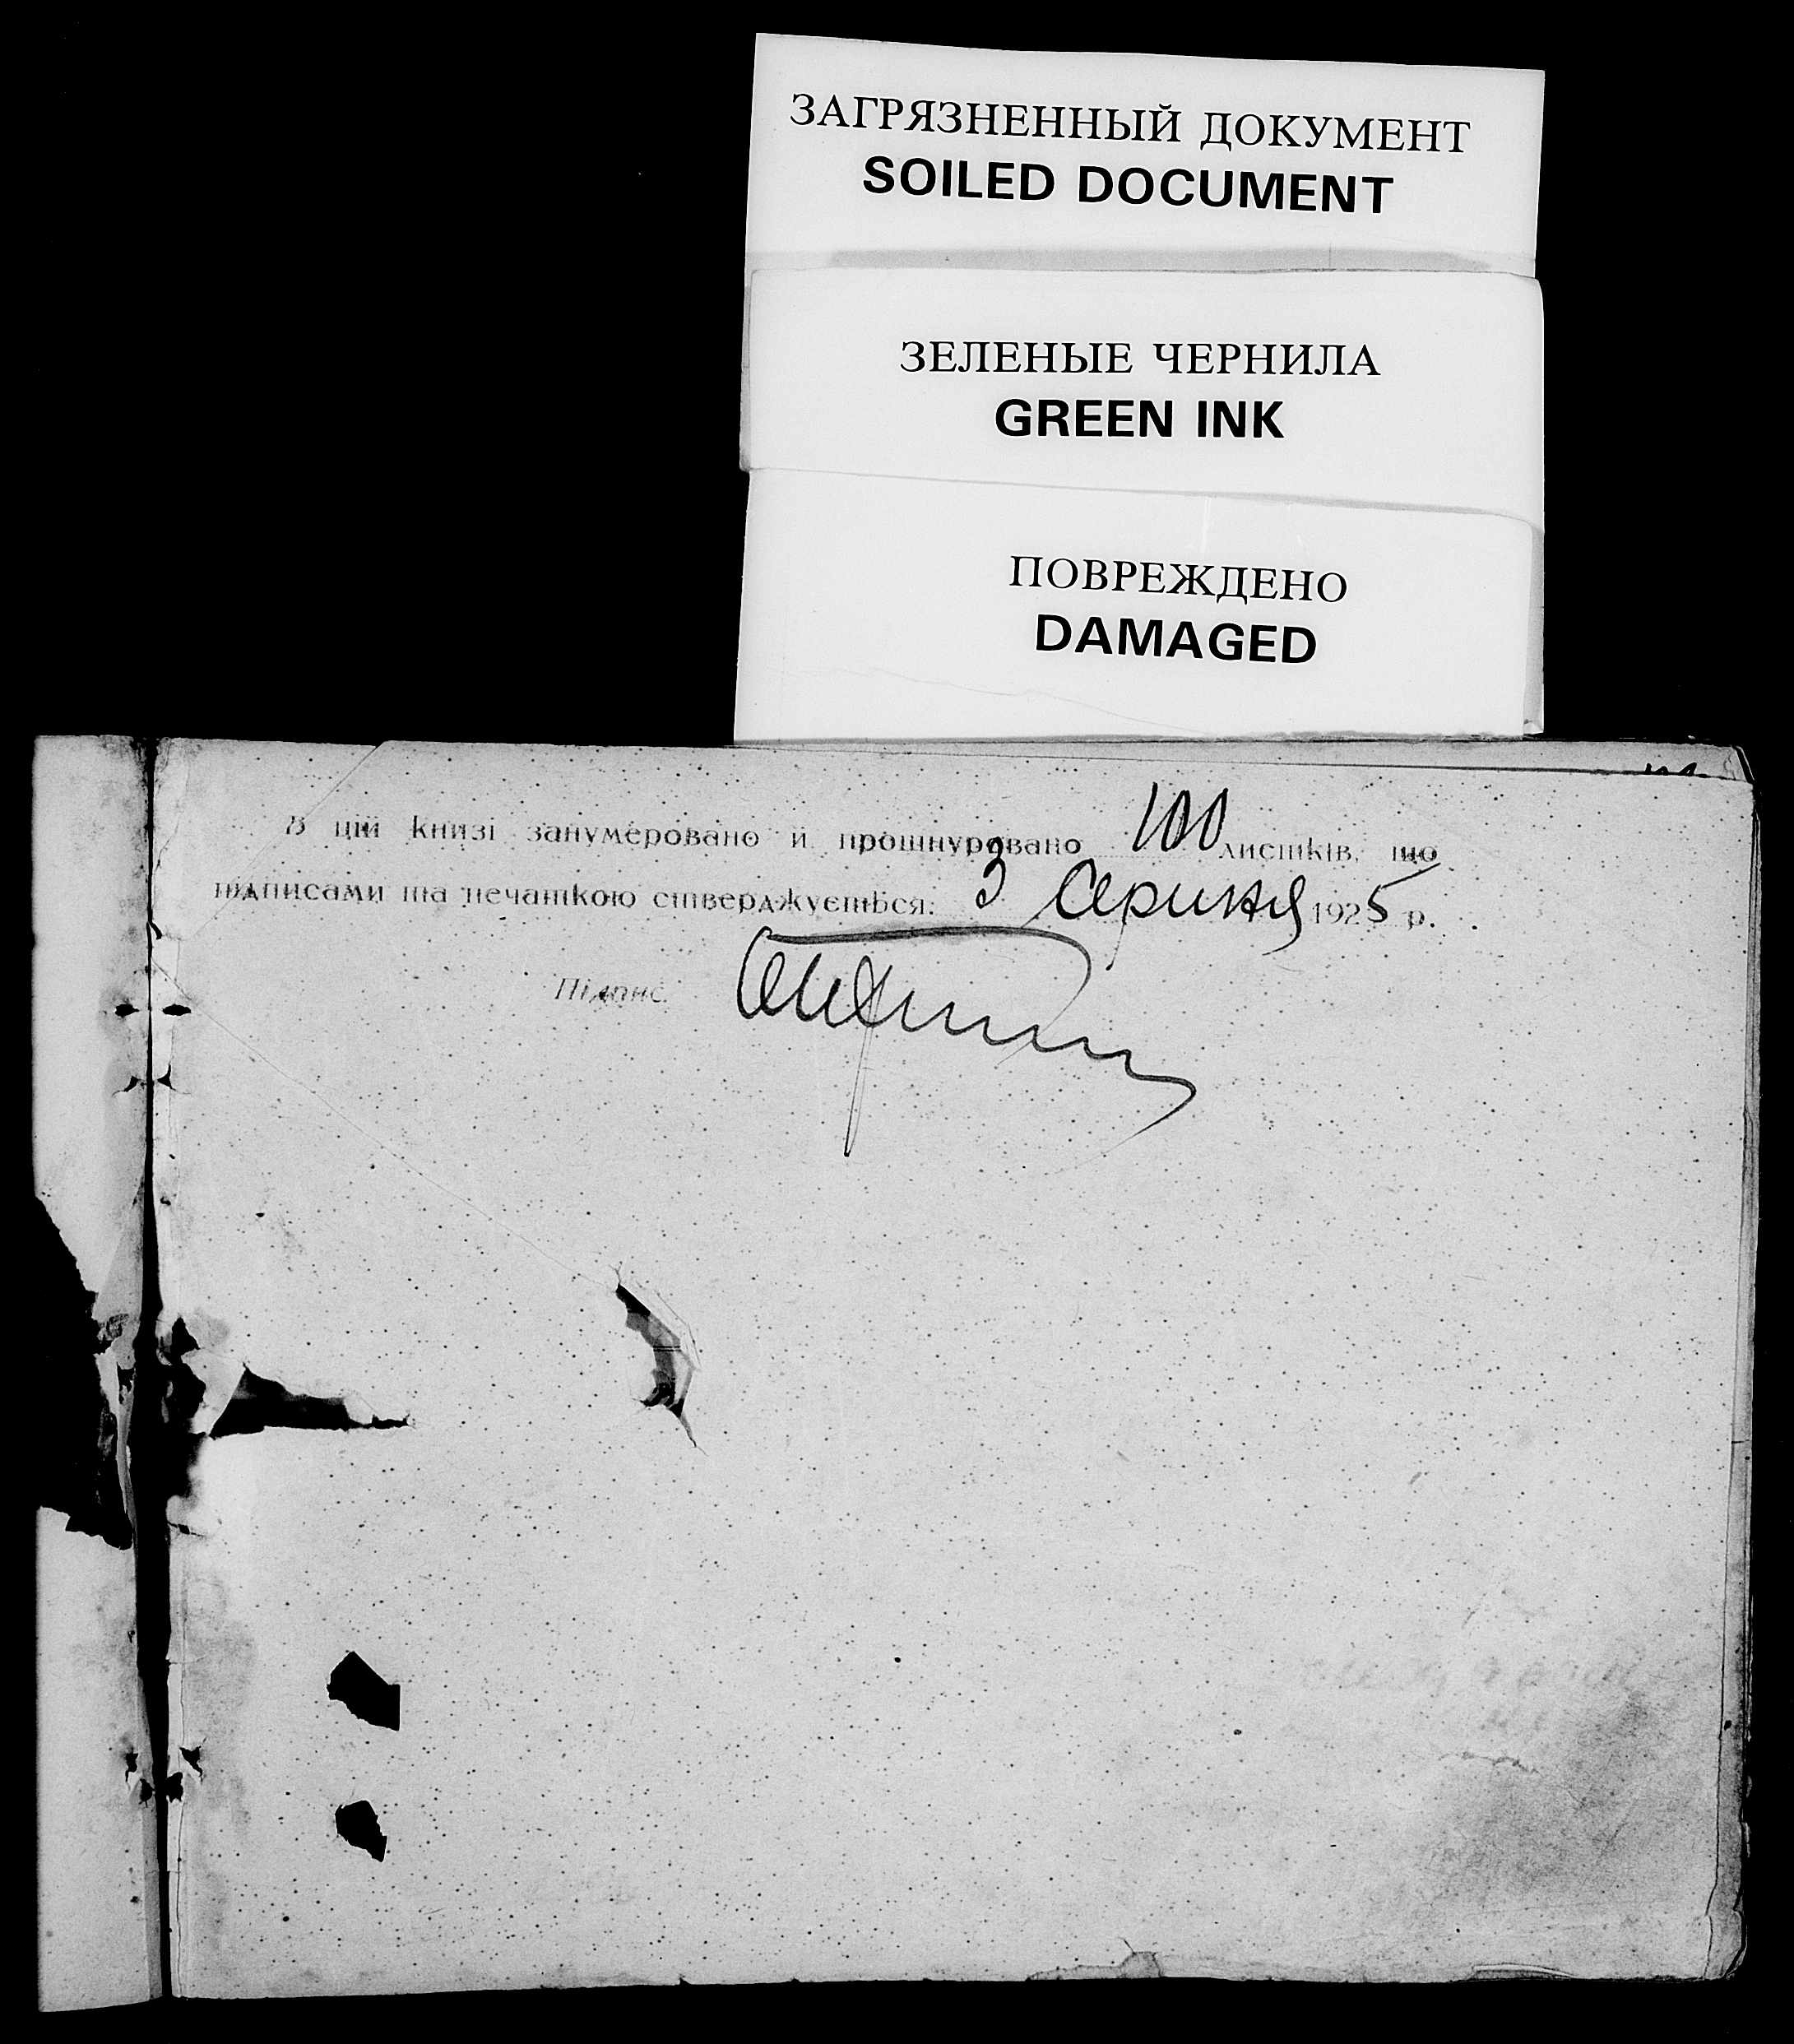 ЗАГРЯЗНЕННЫЙ ДОКУМЕНТ
SOILED DOCUMENT
ЗЕЛЕНЫЕ ЧЕРНИЛА
GREEN INK
ПОВРЕЖДЕНО
DAMAGED
В цій книзі занумеровано й прошнуровано 100 листків, що
підписами та печаткою стверджується. 3 Серпня 1925 р.
Підпис